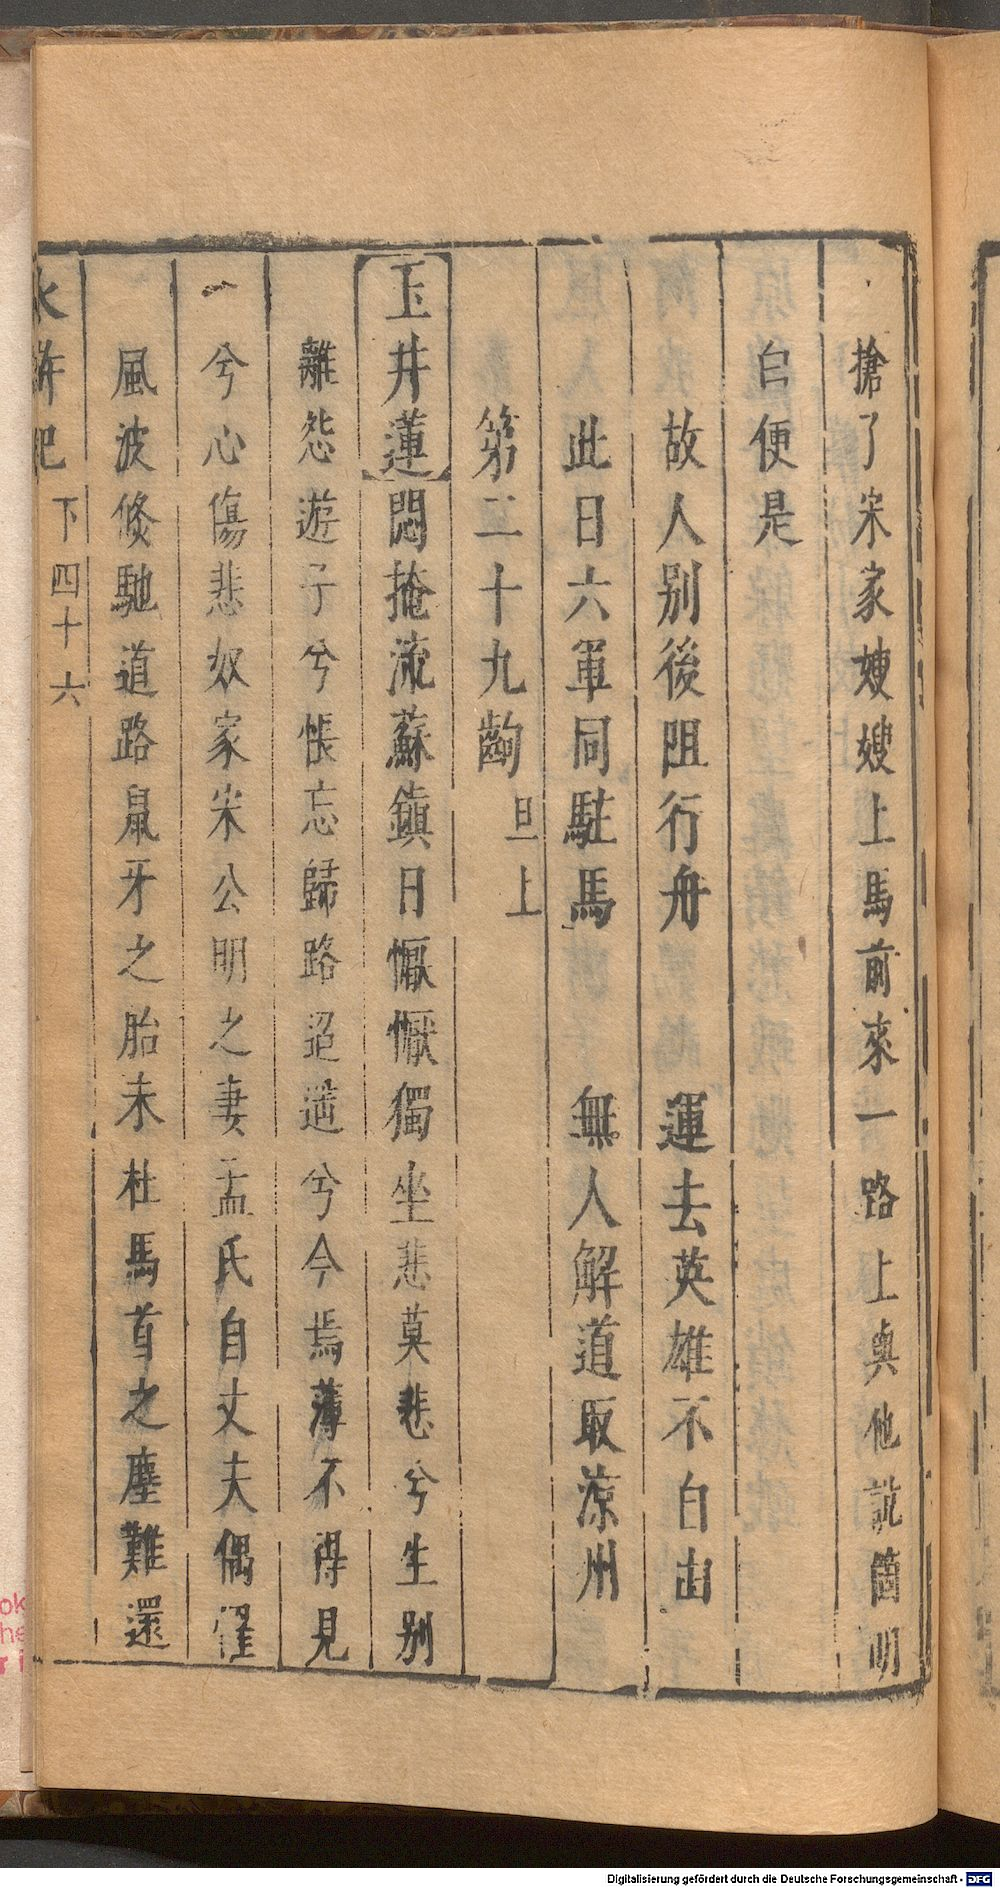 搶了宋家嫂嫂上馬前來一路上與他說箇明
白便是
故人別後阻行舟　運去英雄不自由
此日六軍同駐馬　無人解道取涼州
第二十九齣　旦上
玉井蓮　悶掩流蘇鎮日懨懨獨坐悲莫悲兮生别
離怨遊子兮悵忘歸路迢遞兮今焉薄不得見
兮心傷悲奴家宋公明之妻孟氏自丈夫偶罹
風波倏馳道路鼠牙之胎未杜馬首之塵難還
水滸記　下　四十六
Digitalisierung gefördert durch die Deutsche Forschungsgemeinschaft - DFG